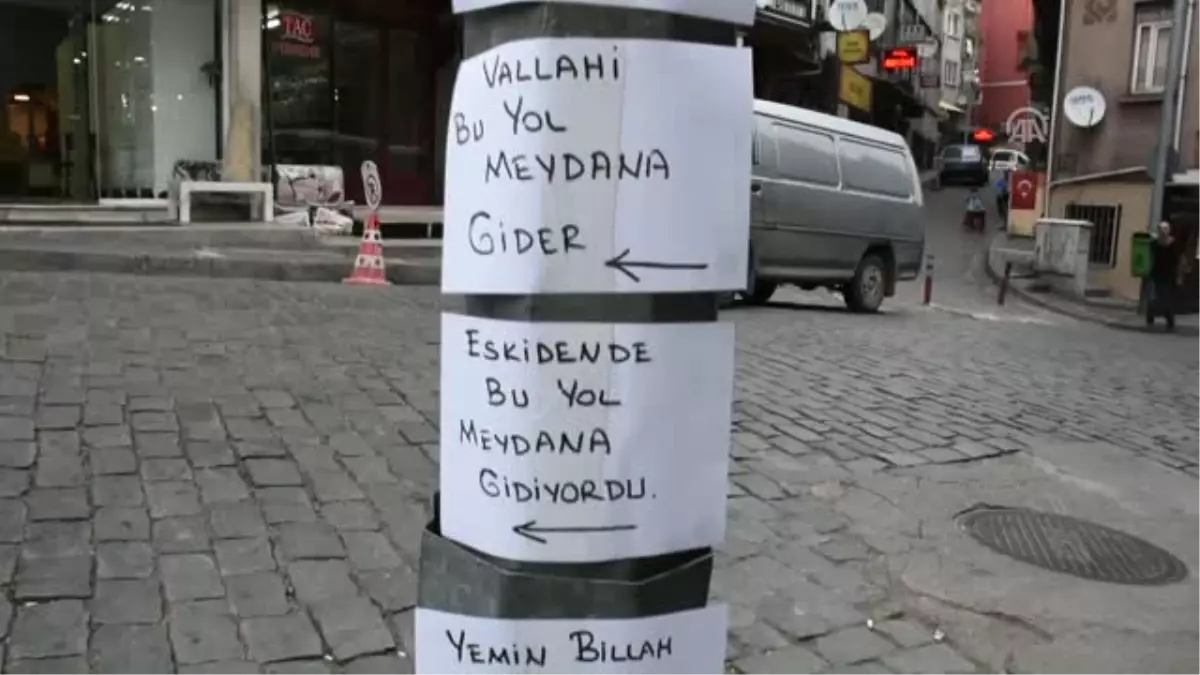 VALLAHI
BU YOL
MEYDANA
GİDER
ESKİDENDE
BU YOL
MEYDANA
GİDİYORDU.
YEMİN BİLLAH
TAÇ
AA